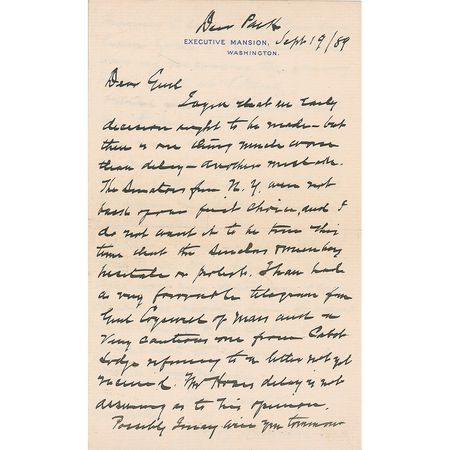 Deer Park
EXECUTIVE MANSION, Sept 19/89
WASHINGTON.
Dear Genl
I agree that an early
decision ought to be made - but
there is one thing much worse
than delay - another mistake.
The Senators from N. Y. were not
back of our first choice, and I
do not want it to be true this
time that the
hesitate or protest. I have had
a very favorable telegram from
Genl Cogswell of Mass and a
very cautious one from Cabot
Lodge referring to a letter not yet
received. Mr Hoars delay is not
assuring as to his opinion.
Possibly I may wire you tomorrow